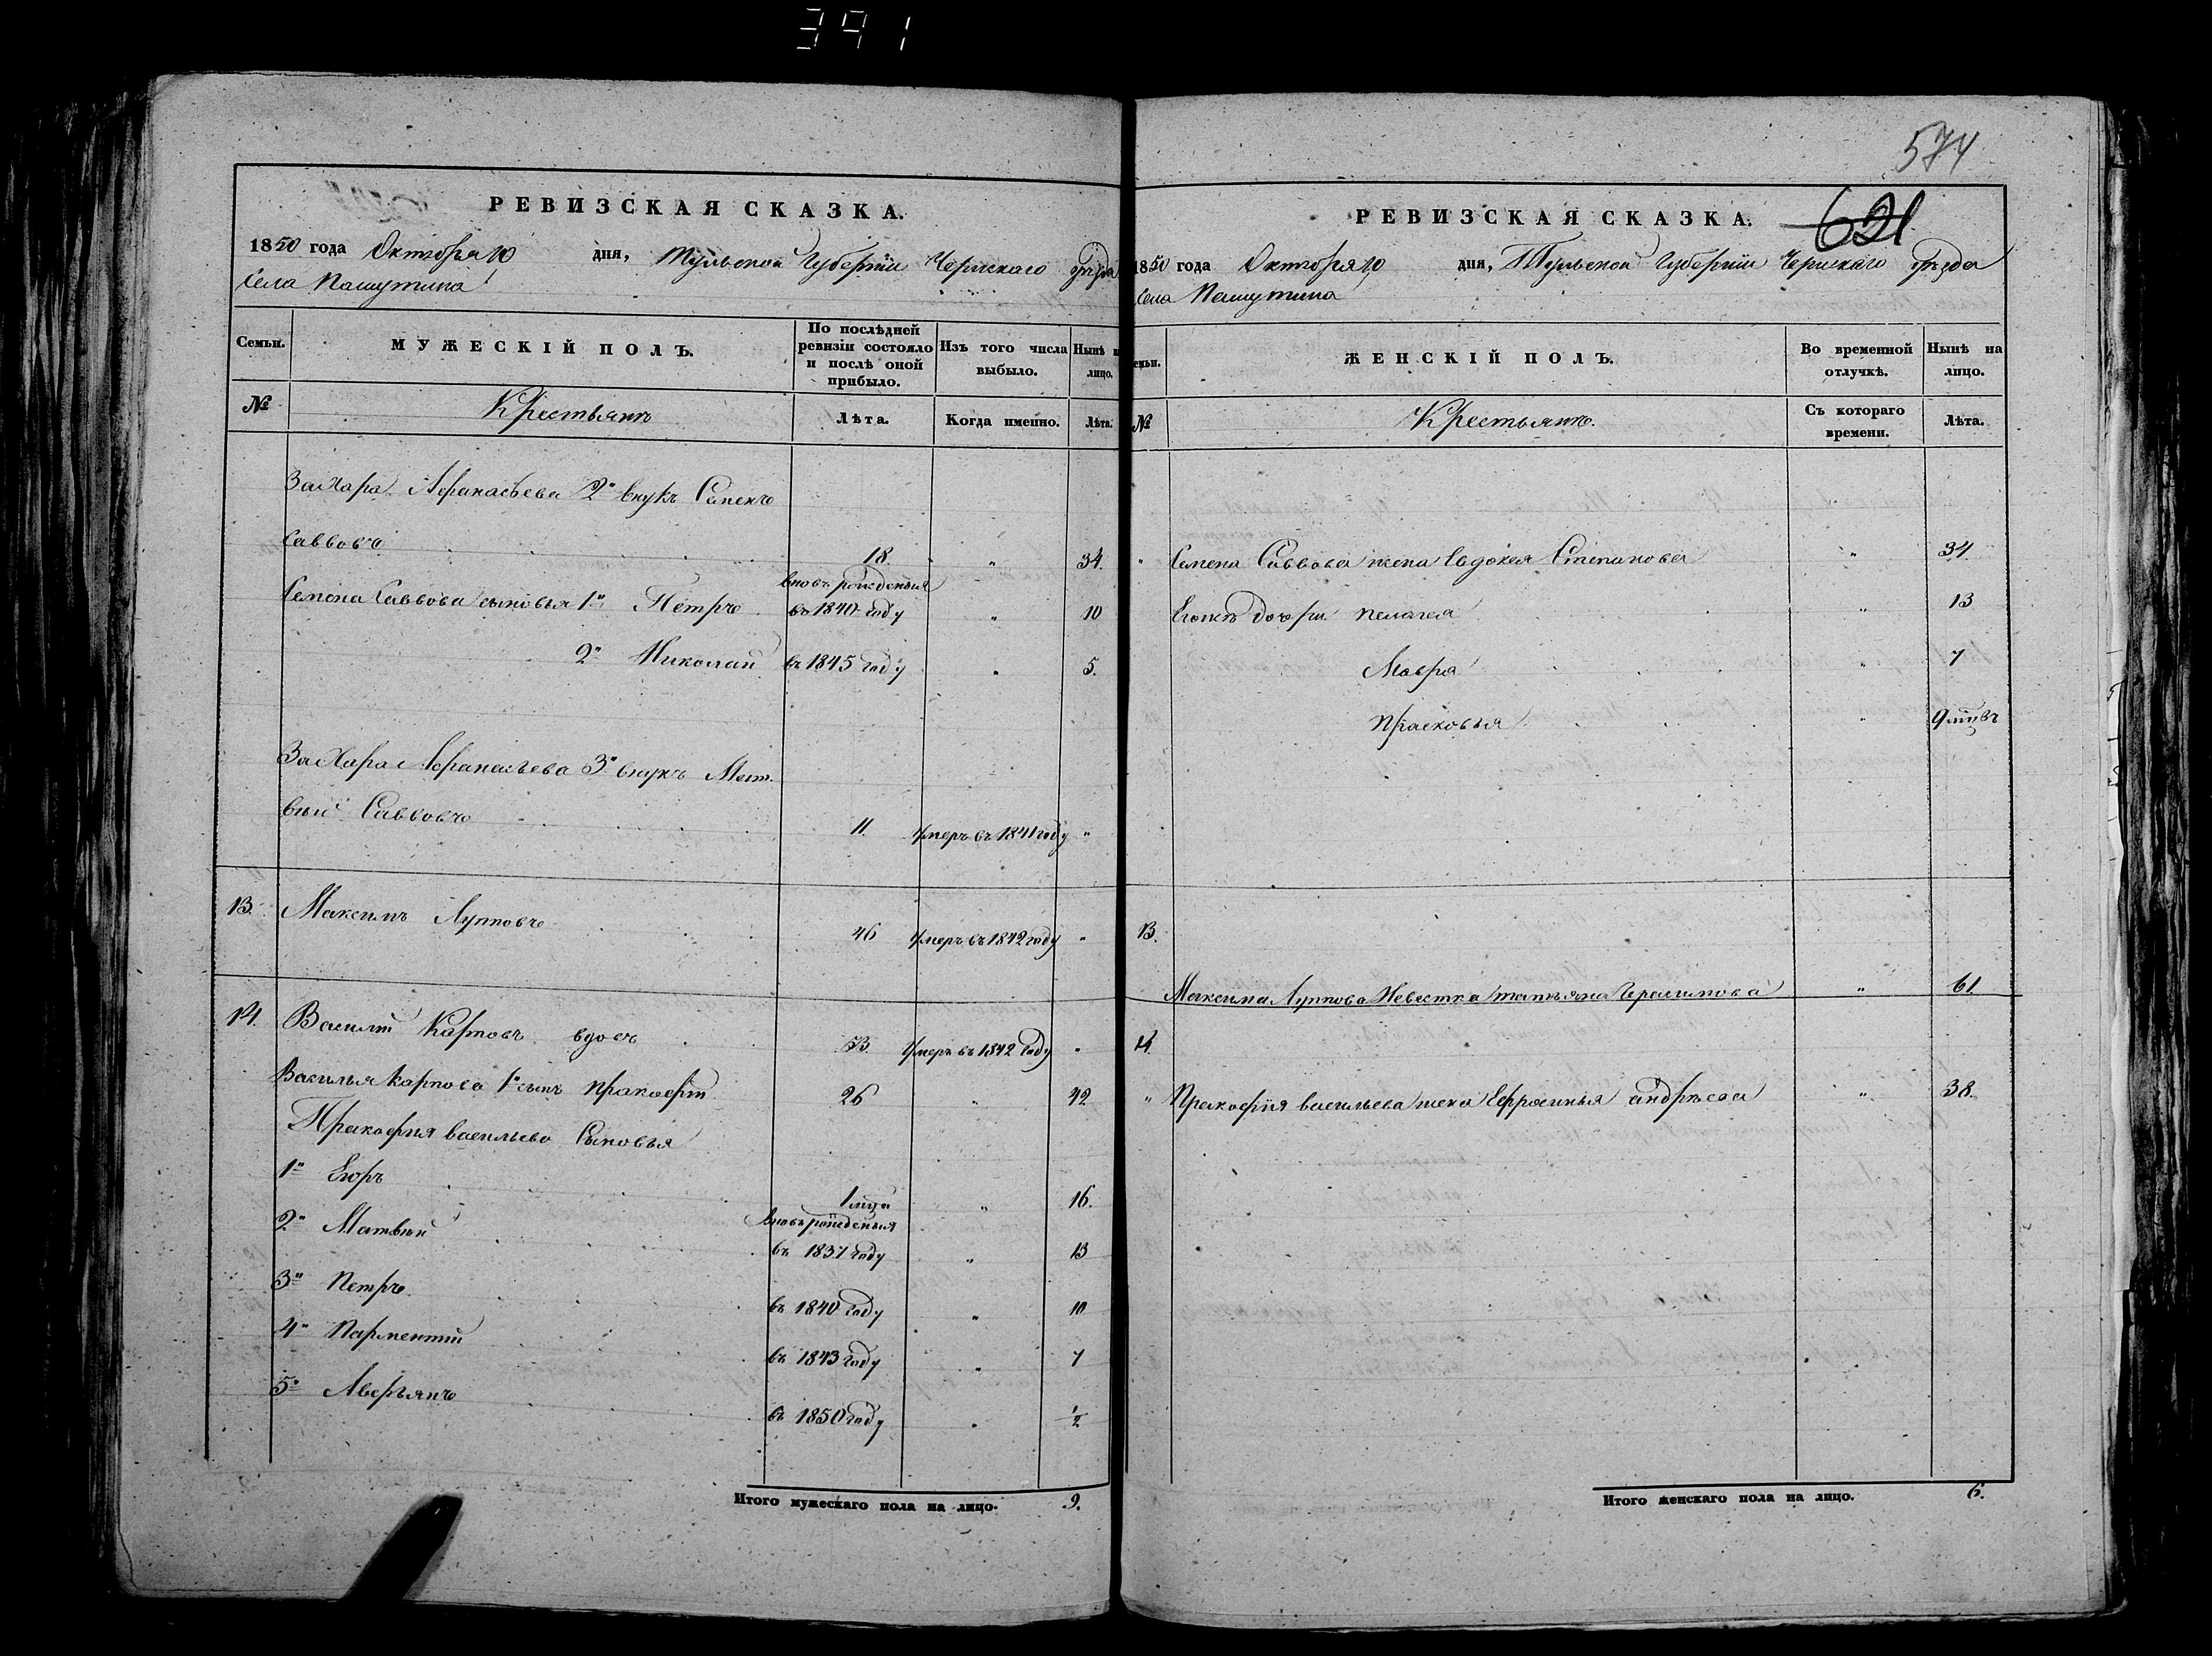 391
РЕВИЗСКАЯ СКАЗКА.
1850 года Октября 10 дня, Тульской Губерніи Чернскаго уѣзда
Села Пашутина
Семьи. МУЖЕСКІЙ ПОЛЪ. По послѣдней ревизіи состояло и послѣ оной прибыло. Изъ того числа выбыло. Нынѣ н лицо.
№ Крестьянъ Лѣта. Когда именно. Лѣта.
Захара Афанасьева 2й внукъ Семенъ
Саввовъ 18 " 34.
вновь рожденыя
Семена Саввова сыновья 1й Петръ въ 1840 году " 10
2й Николай въ 1845 году " 5.
Захара Афанасьева 3й внукъ Мат
вѣй Саввовъ 11. умеръ въ 1841 году "
13. Максимъ Лупповъ 46 умеръ въ 1842 году "
14. Василій Карповъ вдовъ 53 умеръ въ 1842 году "
Василья Карпова 1й сынъ Пракофій 26 " 42
Пракофия васильева Сыновья
1й Егоръ 1 мца " 16.
вновь рожденыя
2й Матвѣй въ 1837 году " 13
3й Петръ въ 1840 году " 10
4й Парментій въ 1843 году " 7
5й Аверьянъ въ 1850 году " 1/2
Итого мужескаго пола на лицо. 9.
574
621
РЕВИЗСКАЯ СКАЗКА.
1850 года Октября 10 дня, Тульской Губерніи Чернскаго уѣзда
Села Пашутина
емьи. ЖЕНСКІЙ ПОЛЪ. Во временной отлучкѣ. Нынѣ на лицо.
№ Крестьянъ. Съ котораго времени. Лѣта.
" Семена Саввова жена Евдокея Степанова " 34
Егожъ дочери Пелагея " 13
Мавра " 7
Прасковья " 9 мцвъ
13.
Максима Луппова Невестка татьяна Герасимова " 61
14.
" Пракофія васильева жена Ефросинья андрѣева " 38.
Итого женскаго пола на лицо. 6.